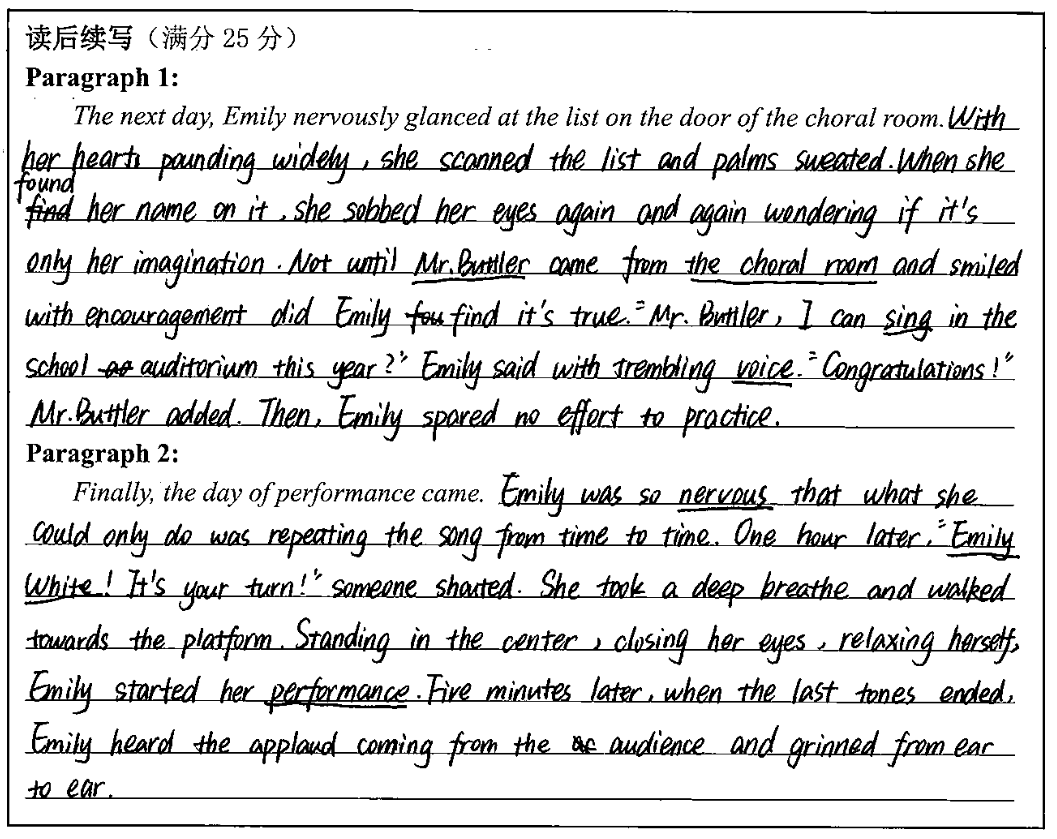 读后续写（满分 25 分）
Paragraph 1:
The next day, Emily nervously glanced at the list on the door of the choral room. With
her heart pounding widely, she scanned the list and palms sweated. When she
found
find her name on it, she sobbed her eyes again and again wondering if it's
only her imagination. Not until Mr. Buttler came from the choral room and smiled
with encouragement did Emily fou find it's true. "Mr. Buttler, I can sing in the
school ao auditorium this year?" Emily said with trembling voice. "Congratulations!"
Mr. Buttler added. Then, Emily spared no effort to practice.
Paragraph 2:
Finally, the day of performance came. Emily was so nervous that what she
could only do was repeating the song from time to time. One hour later, "Emily
White! It's your turn!" someone shouted. She took a deep breathe and walked
towards the platform. Standing in the center, closing her eyes, relaxing herself,
Emily started her performance. Five minutes later, when the last tones ended,
Emily heard the applaud coming from the audience and grinned from ear
to ear.